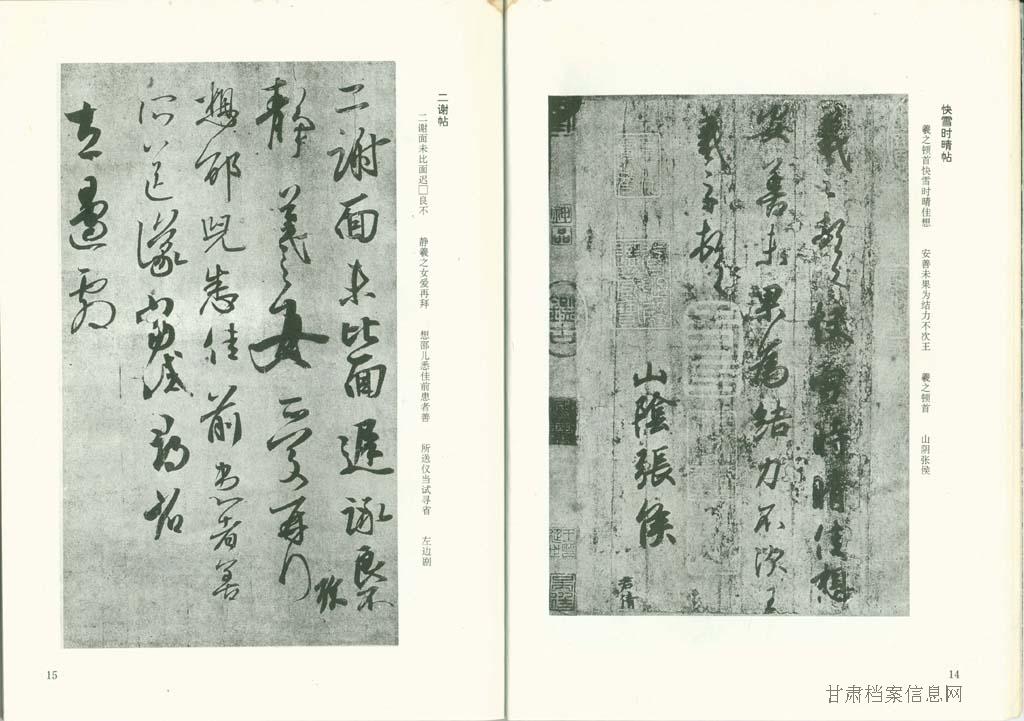 快雪时晴帖
羲之顿首快雪时晴佳想 安善未果为结力不次王 羲之顿首 山阴张侯
羲之頓首快雪時晴佳想
安善未果為結力不次王
羲之頓首
山陰張侯
君倩
神品
14
二谢帖
二谢面未比面迟□良不 静羲之女爱再拜 想邵儿悉佳前患者善 所送仪当试寻省 左边剧
二謝面未比面遲詠良不
靜羲之女愛再拜
想邵兒悉佳前患者善
所送議當試尋省
左邊劇
15
甘肃档案信息网